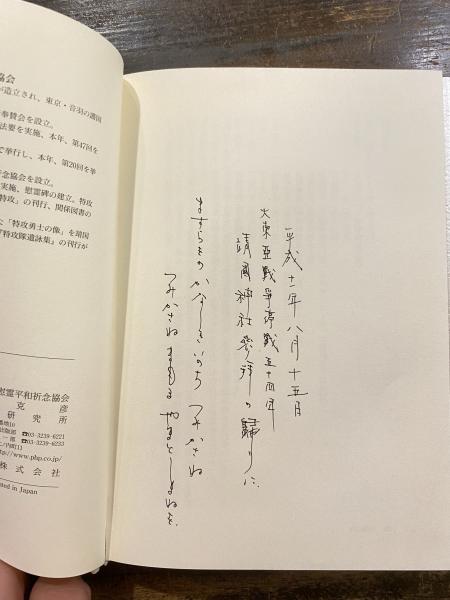 協会
が造立され、東京・音羽の護国
奉賛会を設立。
法要を実施、本年、第47回を
で挙行し、本年、第20回を挙
念協会を設立。
実施、慰霊碑の建立。特攻
特攻』の刊行、関係図書の
な「特攻勇士の像」を靖国
『特攻隊遺詠集』の刊行が
慰霊平和祈念協会
克彦
研究所
番地10
☎03-3239-6221
☎03-3239-6233
二ノ内町11
http://www.php.co.jp/
株式会社
Printed in Japan
平成十一年八月十五日
大東亞戰爭停戰五十四年
靖國神社参拝の歸りに.
ますらをの かなしきいのち つみかさね
つみかさね まもる やまとしまねを